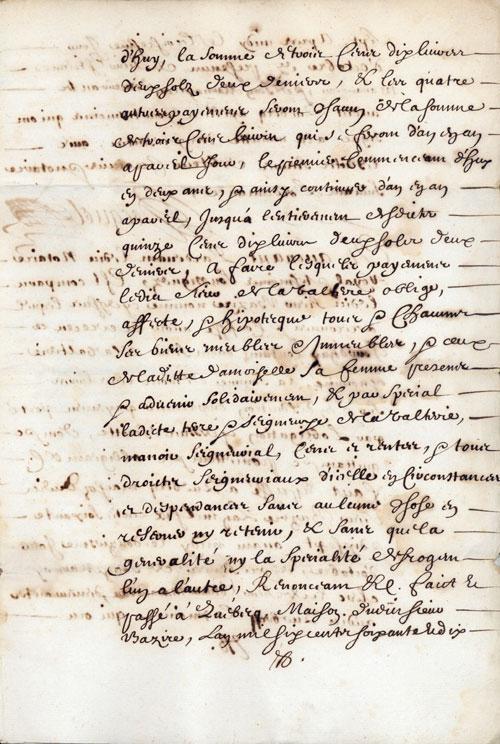 d'huy, la somme de trois Cens dix livres
deux solz deux deniers, & les quatre
autres payemens seront chacun de la somme
de trois Cens livres qui se feront d'an en an
a pareil Jour, le premier Commenceant d'huy
en deux ans, & ainsy continuer d'an en an
a pareil, Jusqu'a lentierement desdites
quinze Cens dix livres deux solz deux
deniers, A faire lesquelz payemens
ledit sieur de la valterie, oblige,
affecte, & hypoteque tous & Chacuns
ses biens meubles & Immeubles, & ceux
de laditte damoiselle sa femme presens
& advenir solidairement, & par special
ladicte terre & seigneurye de la Valterie,
manoir seigneurial, Cens et rentes, & tous
droicts seigneuriaux d'icelle en Circonstances
et despendances sans aulcune chose en
reserver ny retenir, & sans que la
generalité ny la specialité desrogent
l'un a l'autre, Renonceant &c. faict et
passé à Quebecq, Maison dudit sieur
Bazire, L'an mil six cents soixante et dix